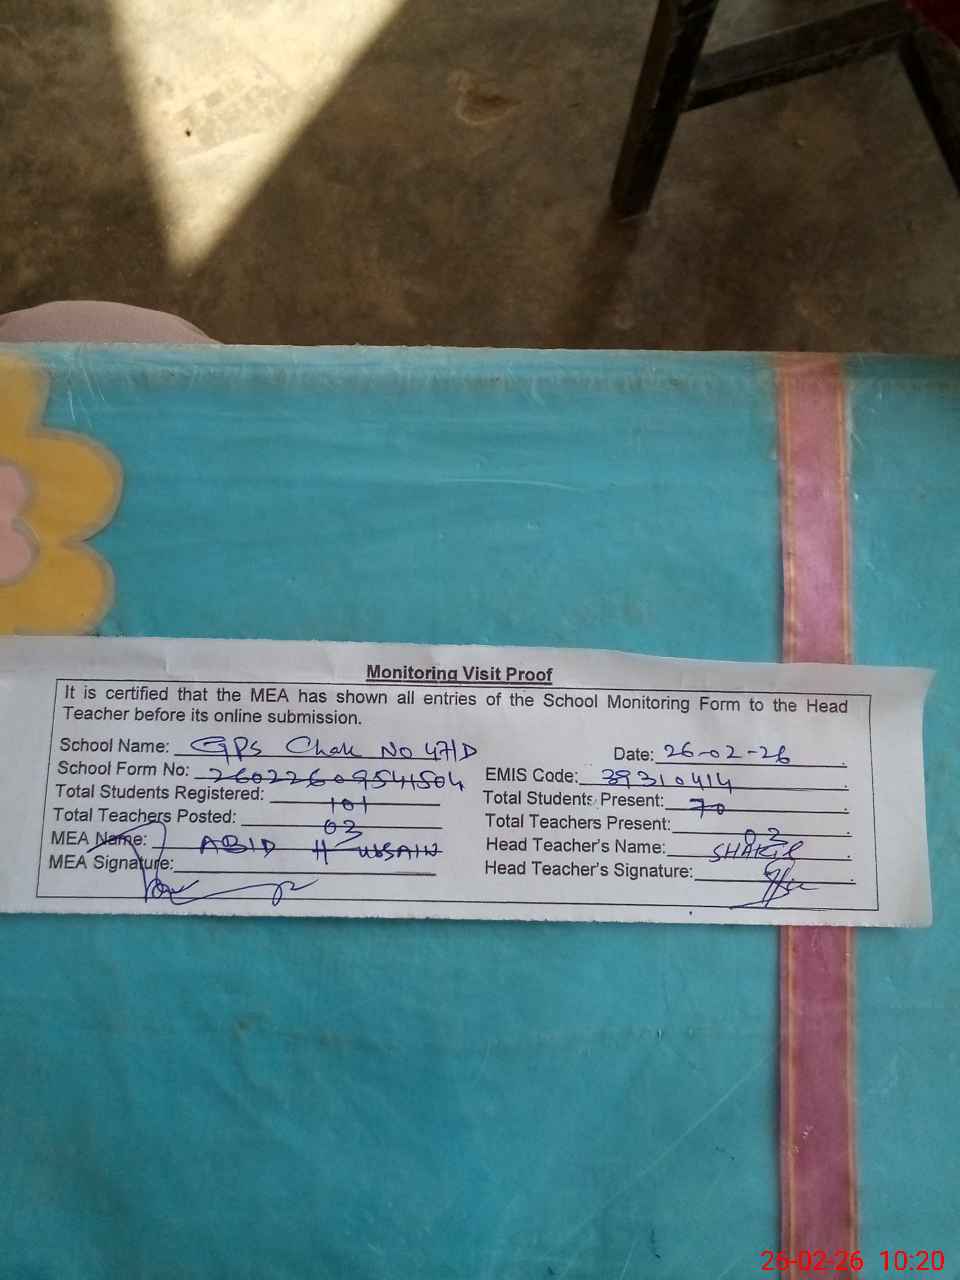 Monitoring Visit Proof
It is certified that the MEA has shown all entries of the School Monitoring Form to the Head
Teacher before its online submission.
School Name: GPS Chak No 47/D Date: 26-02-26
School Form No: 26022609541504 EMIS Code: 39310414
Total Students Registered: 101 Total Students Present: 70
Total Teachers Posted: 03 Total Teachers Present: 03
MEA Name: ABID HUSSAIN Head Teacher's Name: SHAKIR
MEA Signature: Head Teacher's Signature:
26-02-26 10:20